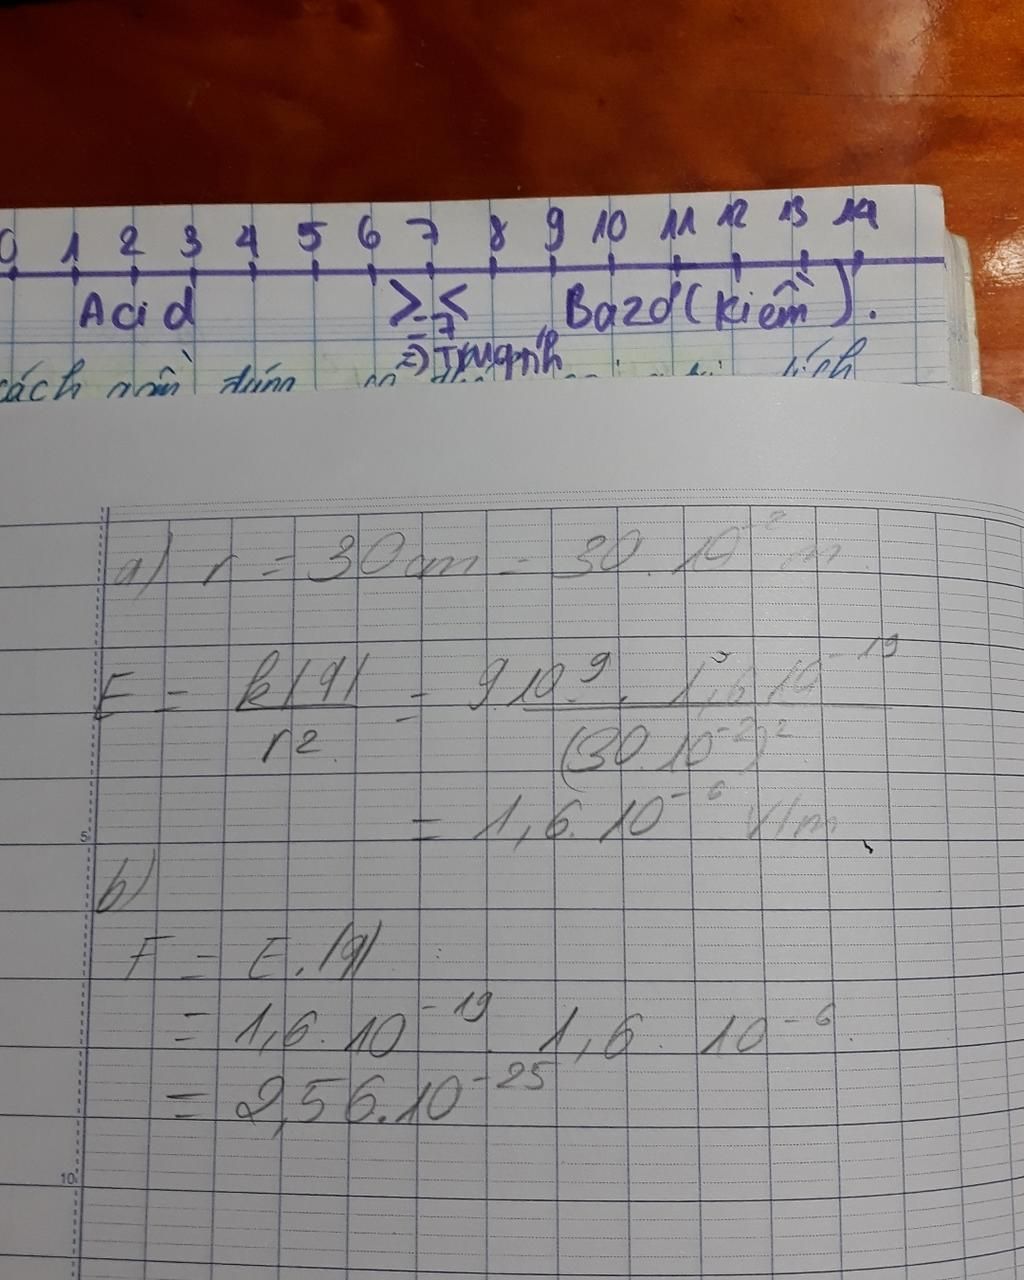 0 1 2 3 4 5 6 7 8 9 10 11 12 13 14
Acid > < Bazơ (kiềm).
= 7
=) Trung tính
cách
a) r = 30 cm = 30. 10⁻² m
E = k|q| / r² = 9.10⁹. 1,6.10⁻¹⁹ / (30.10⁻²)²
= 1,6. 10⁻⁶ V/m
b)
F = E. |q|
= 1,6. 10⁻¹⁹. 1,6. 10⁻⁶
= 2,56.10⁻²⁵
5
10